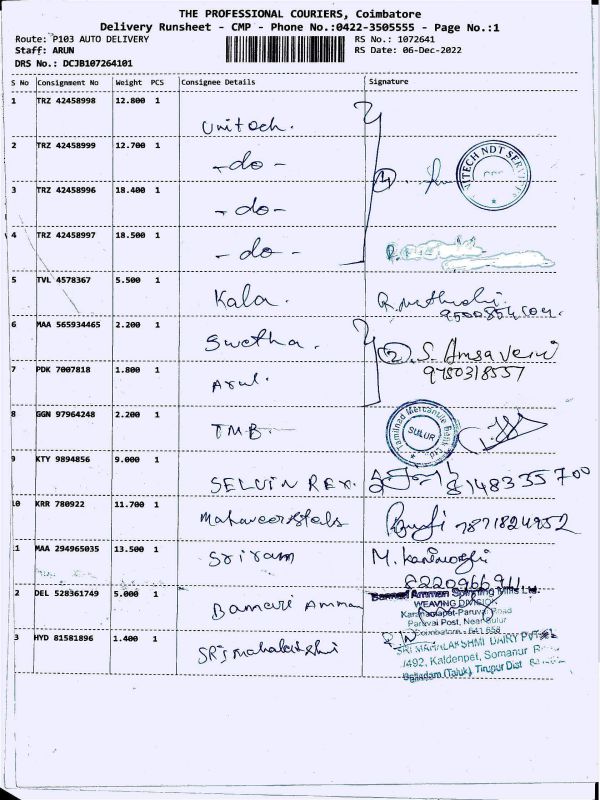 THE PROFESSIONAL COURIERS, Coimbatore
Delivery Runsheet - CMP - Phone No.:0422-3505555 - Page No.:1
Route: P103 AUTO DELIVERY
RS No.: 1072641
Staff: ARUN
RS Date: 06-Dec-2022
DRS No.: DCJB107264101
S No Consignment No Weight PCS Consignee Details Signature
1 TRZ 42458998 12.800 1 Unitech.
2 TRZ 42458999 12.700 1 -do-
VITECH NDT SERVICES
3 TRZ 42458996 18.400 1 -do-
4
4 TRZ 42458997 18.500 1 -do-
5 TVL 4578367 5.500 1 Kala.
6 MAA 565934465 2.200 1 Swetha. 2. S. Amsaveni
7 PDK 7007818 1.800 1 Arul. 9750318557
8 GGN 97964248 2.200 1 TMB.
Tamilnad Mercantile Bank Ltd.
SULUR
9 KTY 9894856 9.000 1 SELVIN REX. 8148335700
10 KRR 780922 11.700 1 Mahaveer 7871824952
11 MAA 294965035 13.500 1 Sriram M.
8220966911
2 DEL 528361749 5.000 1 Bannari Amman
Bannari Amman Spinning Mills Ltd.
WEAVING DIVISION
Paruvai Post, Near Sulur
Coimbatore - 641 658
3 HYD 81581896 1.400 1 SRi mahalakshmi
SRI MAHALAKSHMI DAIRY
/492, Kaldenpet, Somanur
Palladam (Taluk), Tirupur Dist